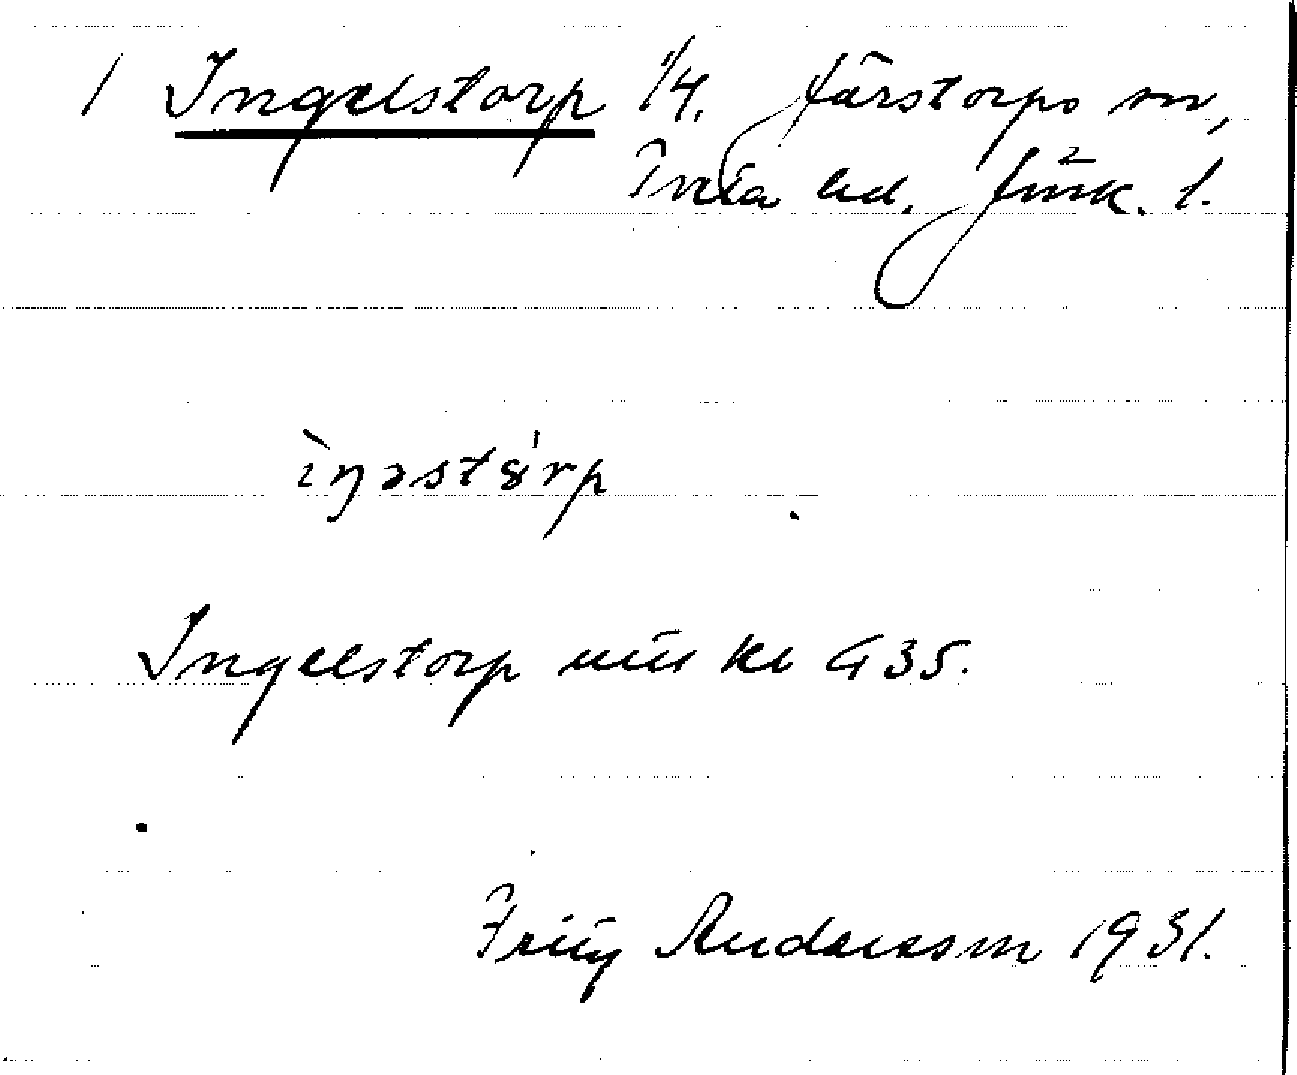 1 Ingelstorp 1/4. Järstorps sn,
Tveta hd. Jönk. l.
ìŋəstórp
Ingelstorp uiu kb G 35.
Fritz Andersson 1931.